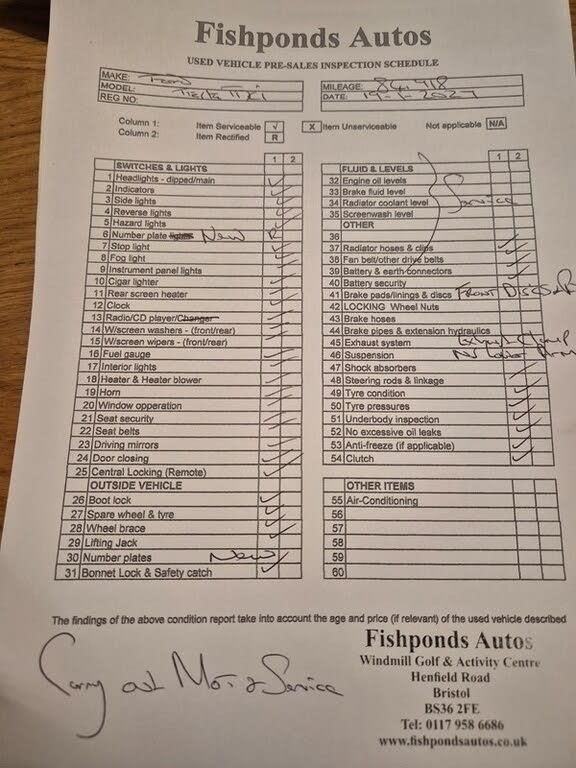 Fishponds Autos
USED VEHICLE PRE-SALES INSPECTION SCHEDULE
MAKE: Ford
MODEL: Fiesta TDCi
REG NO:
MILEAGE: 84,918
DATE:
Column 1: Item Serviceable √ X Item Unserviceable Not applicable N/A
Column 2: Item Rectified R
SWITCHES & LIGHTS 1 2
1 Headlights - dipped/main
2 Indicators
3 Side lights
4 Reverse lights
5 Hazard lights
6 Number plate lights New R
7 Stop light
8 Fog light
9 Instrument panel lights
10 Cigar lighter
11 Rear screen heater
12 Clock
13 Radio/CD player/Changer
14 W/screen washers - (front/rear)
15 W/screen wipers - (front/rear)
16 Fuel gauge
17 Interior lights
18 Heater & Heater blower
19 Horn
20 Window opperation
21 Seat security
22 Seat belts
23 Driving mirrors
24 Door closing
25 Central Locking (Remote)
OUTSIDE VEHICLE
26 Boot lock
27 Spare wheel & tyre
28 Wheel brace
29 Lifting Jack
30 Number plates New
31 Bonnet Lock & Safety catch
FLUID & LEVELS 1 2
32 Engine oil levels
33 Brake fluid level
34 Radiator coolant level Service
35 Screenwash level
OTHER
36
37 Radiator hoses & clips
38 Fan belt/other drive belts
39 Battery & earth connectors
40 Battery security
41 Brake pads/linings & discs Front Discs &
42 LOCKING Wheel Nuts
43 Brake hoses
44 Brake pipes & extension hydraulics
45 Exhaust system Exhaust Clamp
46 Suspension N/S Lower Arm
47 Shock absorbers
48 Steering rods & linkage
49 Tyre condition
50 Tyre pressures
51 Underbody inspection
52 No excessive oil leaks
53 Anti-freeze (if applicable)
54 Clutch
OTHER ITEMS
55 Air-Conditioning
56
57
58
59
60
The findings of the above condition report take into account the age and price (if relevant) of the used vehicle described
Carry out Mot & Service
Fishponds Autos
Windmill Golf & Activity Centre
Henfield Road
Bristol
BS36 2FE
Tel: 0117 958 6686
www.fishpondsautos.co.uk